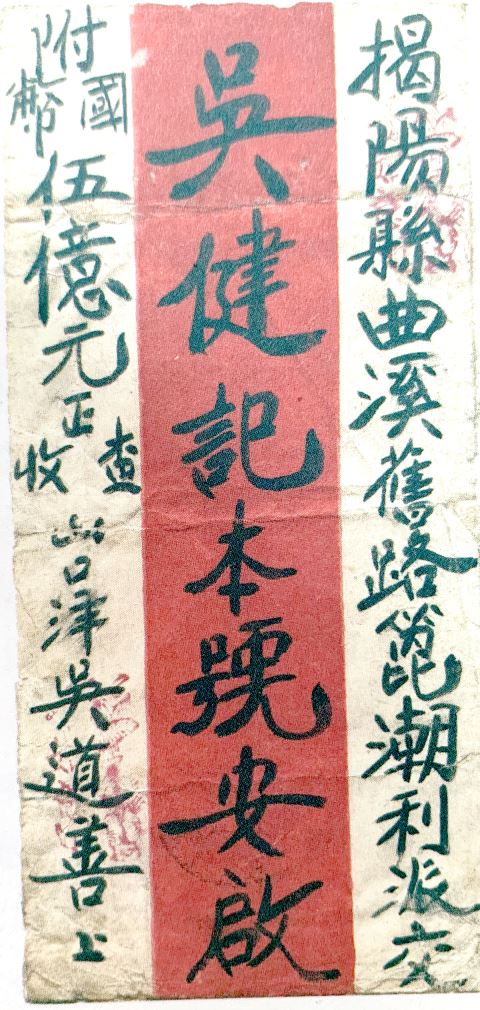 揭陽縣曲溪舊路篦潮利派交
吳健記本號安啟
附國幣伍億元正查收山口洋吳道善上